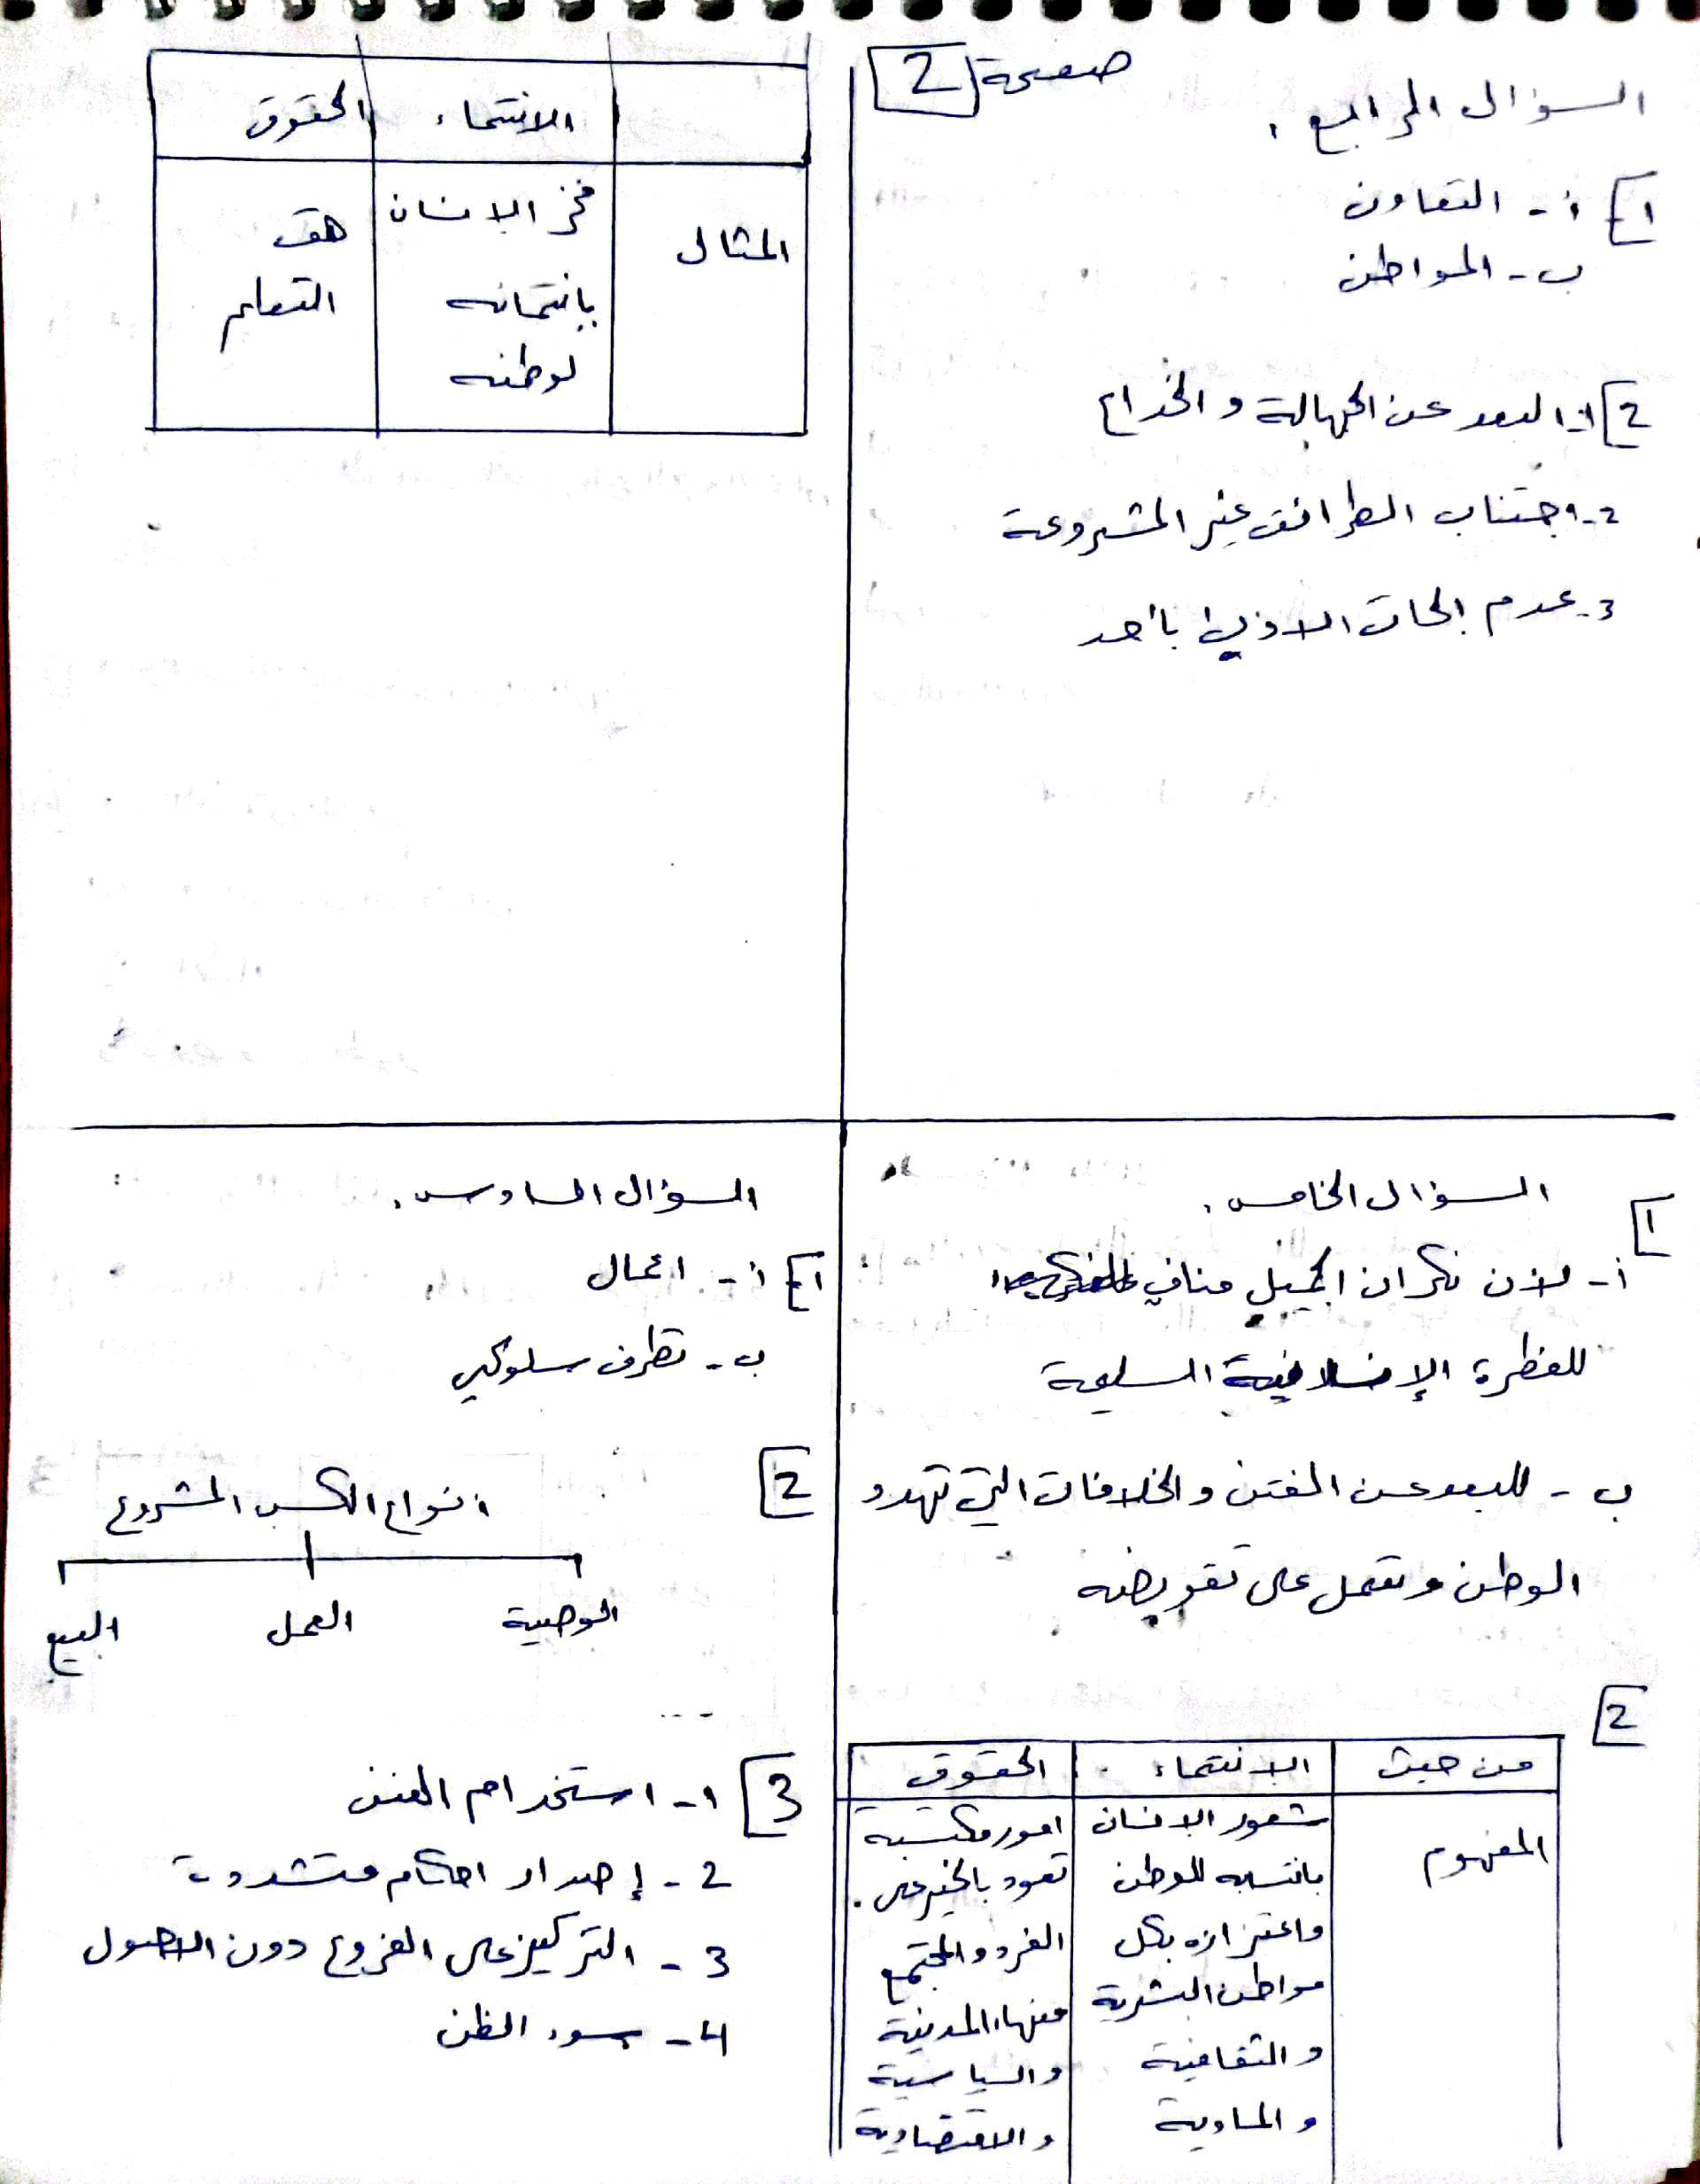 صفحة 2
السؤال الرابع :
1] أ - التعاون
ب - المواطن
2] 1- البعد عن الجهالة و الخداع
2- اجتناب الطرائق غير المشروعة
3- عدم إلحاق الاذى بأحد
الانتماء الحقوق
المثال فخر الانسان بانتمائه لوطنه حق التعلم
السؤال الخامس :
1]
أ - لأن نكران الجميل منافي
للفطرة الإنسانية السليمة
ب - للبعد عن الفتن والخلافات التي تهدد
الوطن وتعمل على تقويضه
2]
من حيث الانتماء الحقوق
المفهوم شعور الانسان امور مكتسبة
بانتسبه للوطن تعود بالخير على
واعتزازه بكل الفرد والمجتمع
مواطن البشرية منها: المدنية
و الثقافية والسياسية
و المادية و الاقتصادية
السؤال السادس :
1] أ - اعمال
ب - تطرف سلوكي
2] انواع الكسب المشروع
الوصية العمل البيع
3] 1- استخدام العنف
2- إصدار احكام متشددة
3- التركيز على الفروع دون الاصول
4- سوء الظن